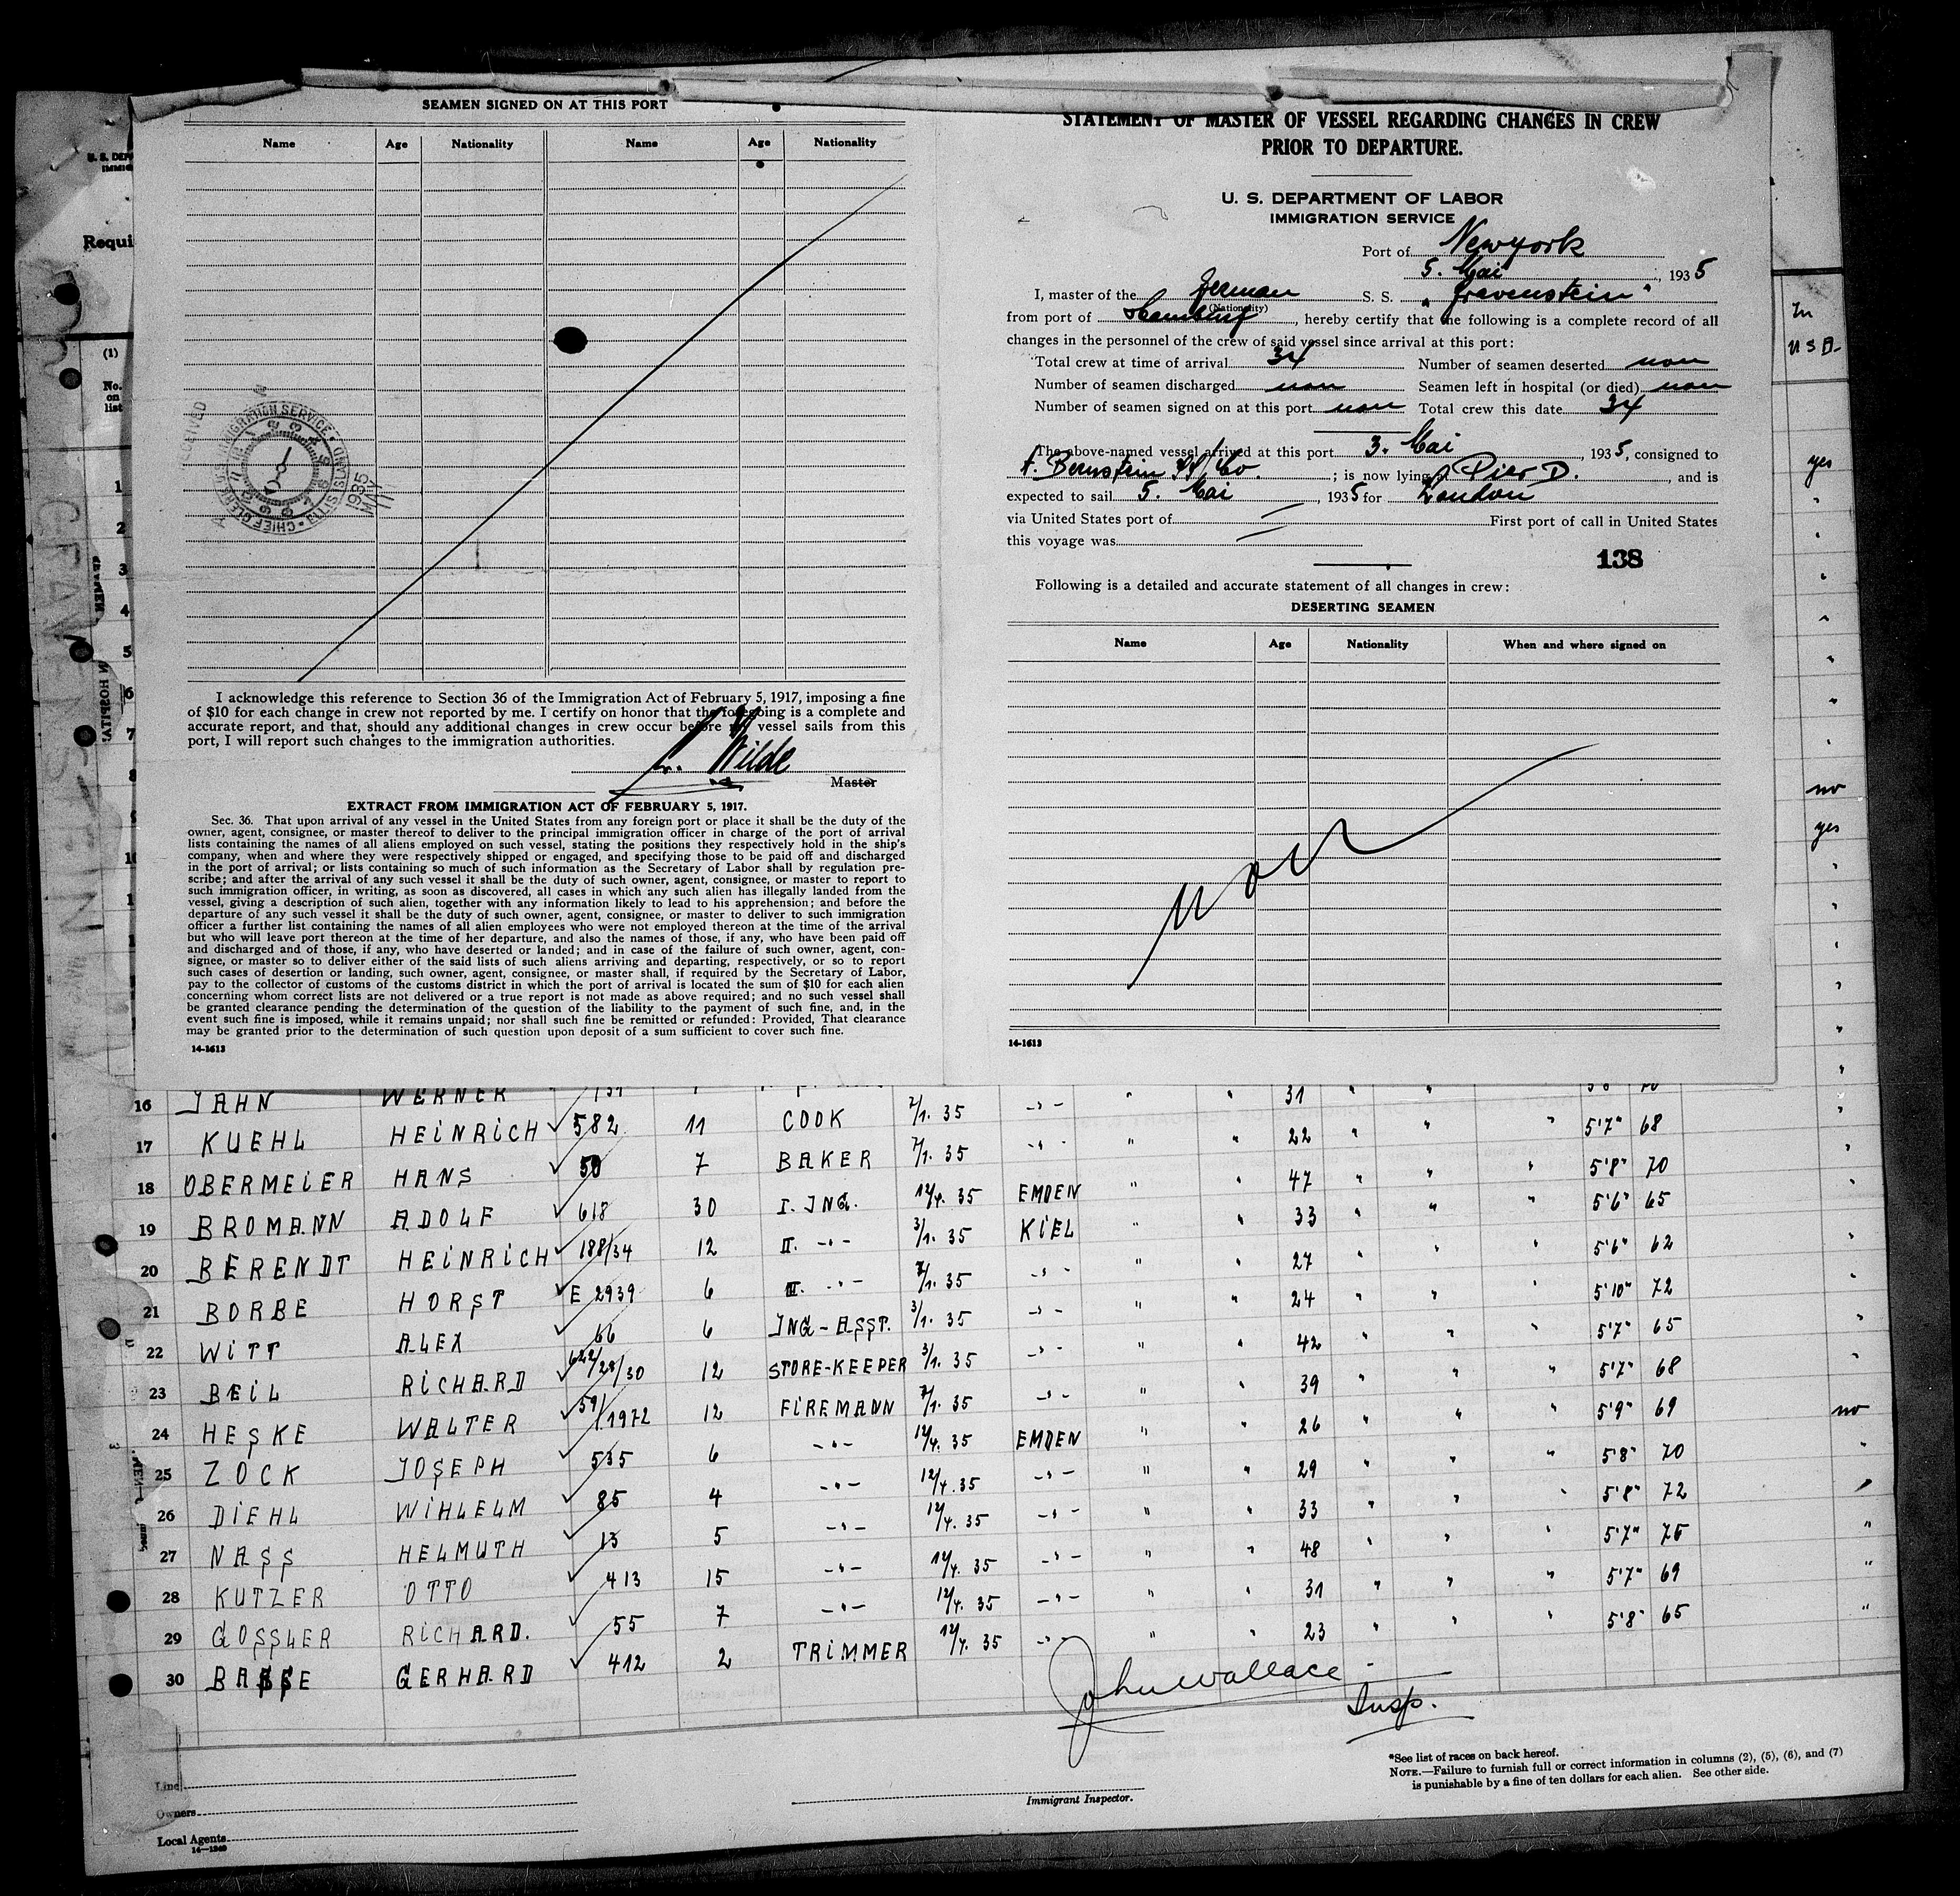 SEAMEN SIGNED ON AT THIS PORT
Name Age Nationality Name Age Nationality
RECEIVED
IMMIGRATION SERVICE
CHIEF CLERK
1935 MAY
I acknowledge this reference to Section 36 of the Immigration Act of February 5, 1917, imposing a fine
of $10 for each change in crew not reported by me. I certify on honor that the foregoing is a complete and
accurate report, and that, should any additional changes in crew occur before my vessel sails from this
port, I will report such changes to the immigration authorities.
Wilde
Master
EXTRACT FROM IMMIGRATION ACT OF FEBRUARY 5, 1917.
Sec. 36. That upon arrival of any vessel in the United States from any foreign port or place it shall be the duty of the
owner, agent, consignee, or master thereof to deliver to the principal immigration officer in charge of the port of arrival
lists containing the names of all aliens employed on such vessel, stating the positions they respectively hold in the ship's
company, when and where they were respectively shipped or engaged, and specifying those to be paid off and discharged
in the port of arrival; or lists containing so much of such information as the Secretary of Labor shall by regulation pre-
scribe; and after the arrival of any such vessel it shall be the duty of such owner, agent, consignee, or master to report to
such immigration officer, in writing, as soon as discovered, all cases in which any such alien has illegally landed from the
vessel, giving a description of such alien, together with any information likely to lead to his apprehension; and before the
departure of any such vessel it shall be the duty of such owner, agent, consignee, or master to deliver to such immigration
officer a further list containing the names of all alien employees who were not employed thereon at the time of the arrival
but who will leave port thereon at the time of her departure, and also the names of those, if any, who have been paid off
and discharged and of those, if any, who have deserted or landed; and in case of the failure of such owner, agent, con-
signee, or master so to deliver either of the said lists of such aliens arriving and departing, respectively, or so to report
such cases of desertion or landing, such owner, agent, consignee, or master shall, if required by the Secretary of Labor,
pay to the collector of customs of the customs district in which the port of arrival is located the sum of $10 for each alien
concerning whom correct lists are not delivered or a true report is not made as above required; and no such vessel shall
be granted clearance pending the determination of the question of the liability to the payment of such fine, and, in the
event such fine is imposed, while it remains unpaid; nor shall such fine be remitted or refunded: Provided, That clearance
may be granted prior to the determination of such question upon deposit of a sum sufficient to cover such fine.
14-1613
STATEMENT OF MASTER OF VESSEL REGARDING CHANGES IN CREW
PRIOR TO DEPARTURE.
U. S. DEPARTMENT OF LABOR
IMMIGRATION SERVICE
Port of Newyork
5. Mai, 1935
I, master of the German S. S. "Grevenstein"
(Nationality)
from port of Hamburg, hereby certify that the following is a complete record of all
changes in the personnel of the crew of said vessel since arrival at this port:
Total crew at time of arrival 34 Number of seamen deserted non
Number of seamen discharged non Seamen left in hospital (or died) non
Number of seamen signed on at this port non Total crew this date 34
The above-named vessel arrived at this port 3. Mai, 1935, consigned to
A. Bernstein SS Co.; is now lying Pier D., and is
expected to sail 5. Mai, 1935 for London
via United States port of First port of call in United States
this voyage was
138
Following is a detailed and accurate statement of all changes in crew:
DESERTING SEAMEN
Name Age Nationality When and where signed on
non
14-1613
Requi
(1)
No. on list
1
2
3
4
5
6
7
8
In
U S A.
yes
no
yes
16 JAHN WERNER 31
17 KUEHL HEINRICH 582 11 COOK 2/1. 35 -"- " " 22 " " " 5'7" 68
18 OBERMEIER HANS 50 7 BAKER 7/1. 35 -"- " " 47 " " " 5'8" 70
19 BROMANN ADOLF 618 30 I. ING. 12/4. 35 EMDEN " " 33 " " " 5'6" 65
20 BERENDT HEINRICH 188/34 12 II. -"- 3/1. 35 KIEL " " 27 " " " 5'6" 62
21 BORBE HORST E 2939 6 III. -"- 7/1. 35 -"- " " 24 " " " 5'10" 72
22 WITT ALEX 66 6 ING-ASST. 3/1. 35 -"- " " 42 " " " 5'7" 65
23 BEIL RICHARD 642/28/30 12 STORE-KEEPER 3/1. 35 -"- " " 39 " " " 5'7" 68
24 HESKE WALTER 59/1972 12 FIREMANN 7/1. 35 -"- " " 26 " " " 5'9" 69 no
25 ZOCK JOSEPH 535 6 -"- 12/4. 35 EMDEN " " 29 " " " 5'8" 70 "
26 DIEHL WIHLELM 85 4 -"- 12/4. 35 -"- " " 33 " " " 5'8" 72 "
27 NASS HELMUTH 13 5 -"- 12/4. 35 -"- " " 48 " " " 5'7" 75 "
28 KUTZER OTTO 413 15 -"- 12/4. 35 -"- " " 31 " " " 5'7" 69 "
29 GOSSLER RICHARD. 55 7 -"- 12/4. 35 -"- " " 23 " " " 5'8" 65 "
30 BASSE GERHARD 412 2 TRIMMER 12/4. 35 -"-
John Wallace
Insp.
Line
Owners
Local Agents
14-1240
Immigrant Inspector.
*See list of races on back hereof.
NOTE.—Failure to furnish full or correct information in columns (2), (5), (6), and (7)
is punishable by a fine of ten dollars for each alien. See other side.